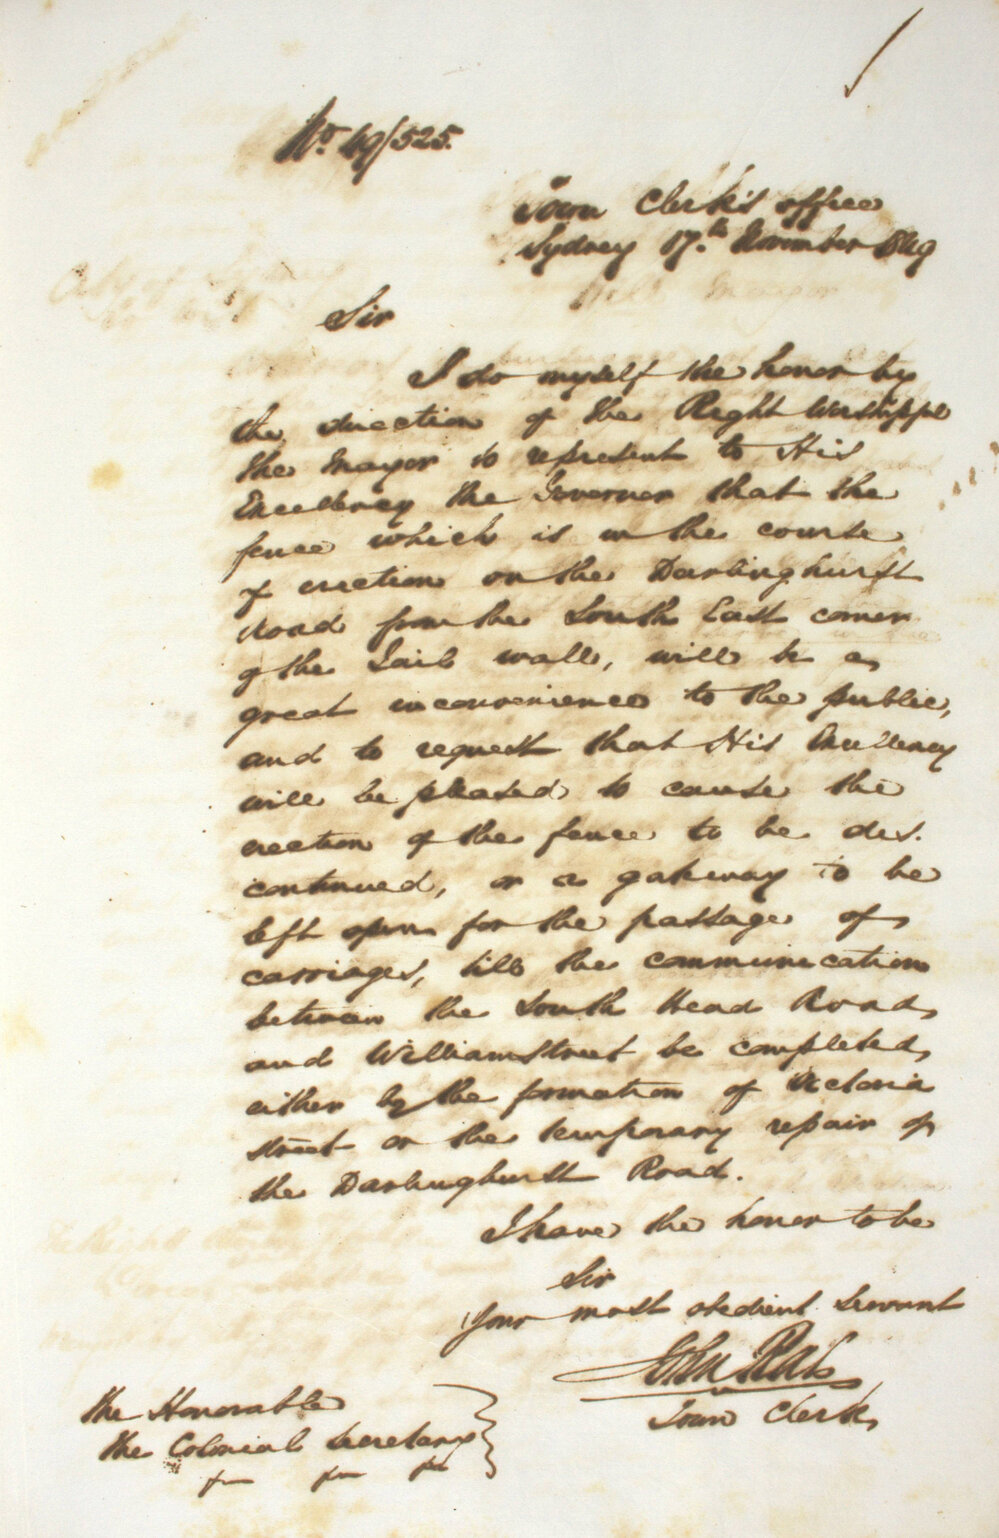 No. 49/525.
Town Clerk's office
Sydney 17.th November 1849
Sir
I do myself the honor by
the direction of the Right Worshipful
the Mayor to represent to His
Excellency the Governor that the
fence which is in the course
of erection on the Darlinghurst
Road from the South East corner
of the Gaol wall, will be a
great inconvenience to the public,
and to request that His Excellency
will be pleased to cause the
erection of the fence to be dis.
continued, or a gateway to be
left open for the passage of
carriages, till the communication
between the South Head Road
and William Street be completed
either by the formation of Victoria
street or the temporary repair of
the Darlinghurst Road.
I have the honor to be
Sir
Your most obedient servant
John Rae
Town Clerk
The Honorable
The Colonial Secretary